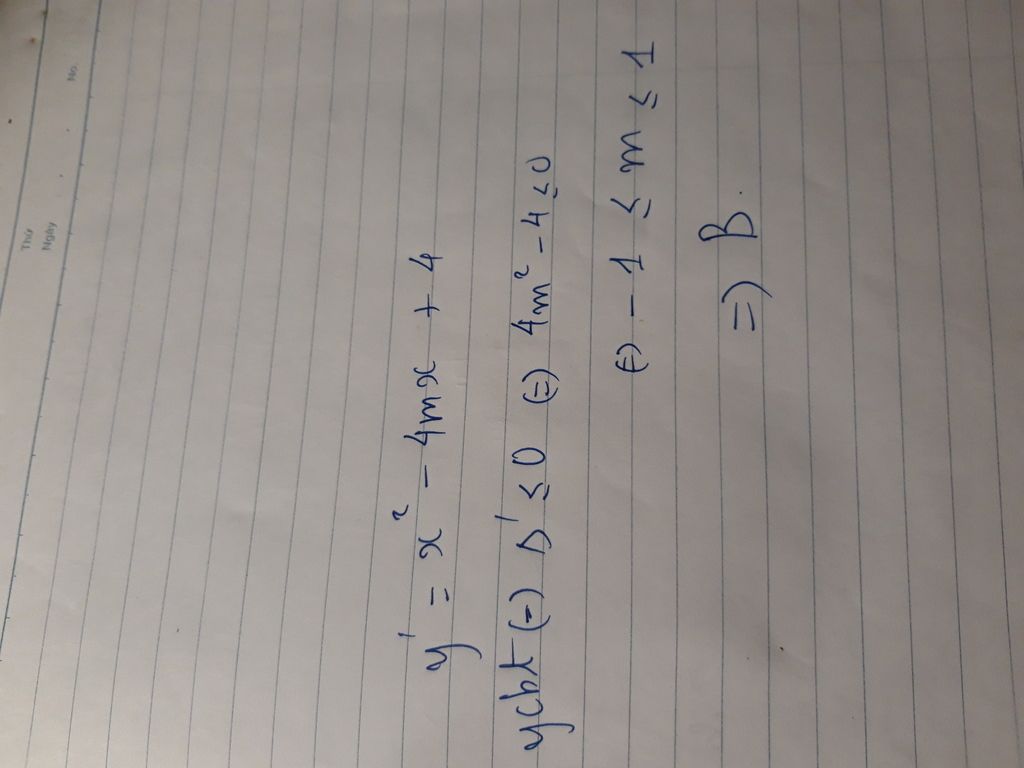 Thứ
Ngày
No.
y' = x² - 4mx + 4
ycbt (=) Δ' ≤ 0 (=) 4m² - 4 ≤ 0
(=) - 1 ≤ m ≤ 1
=) B.